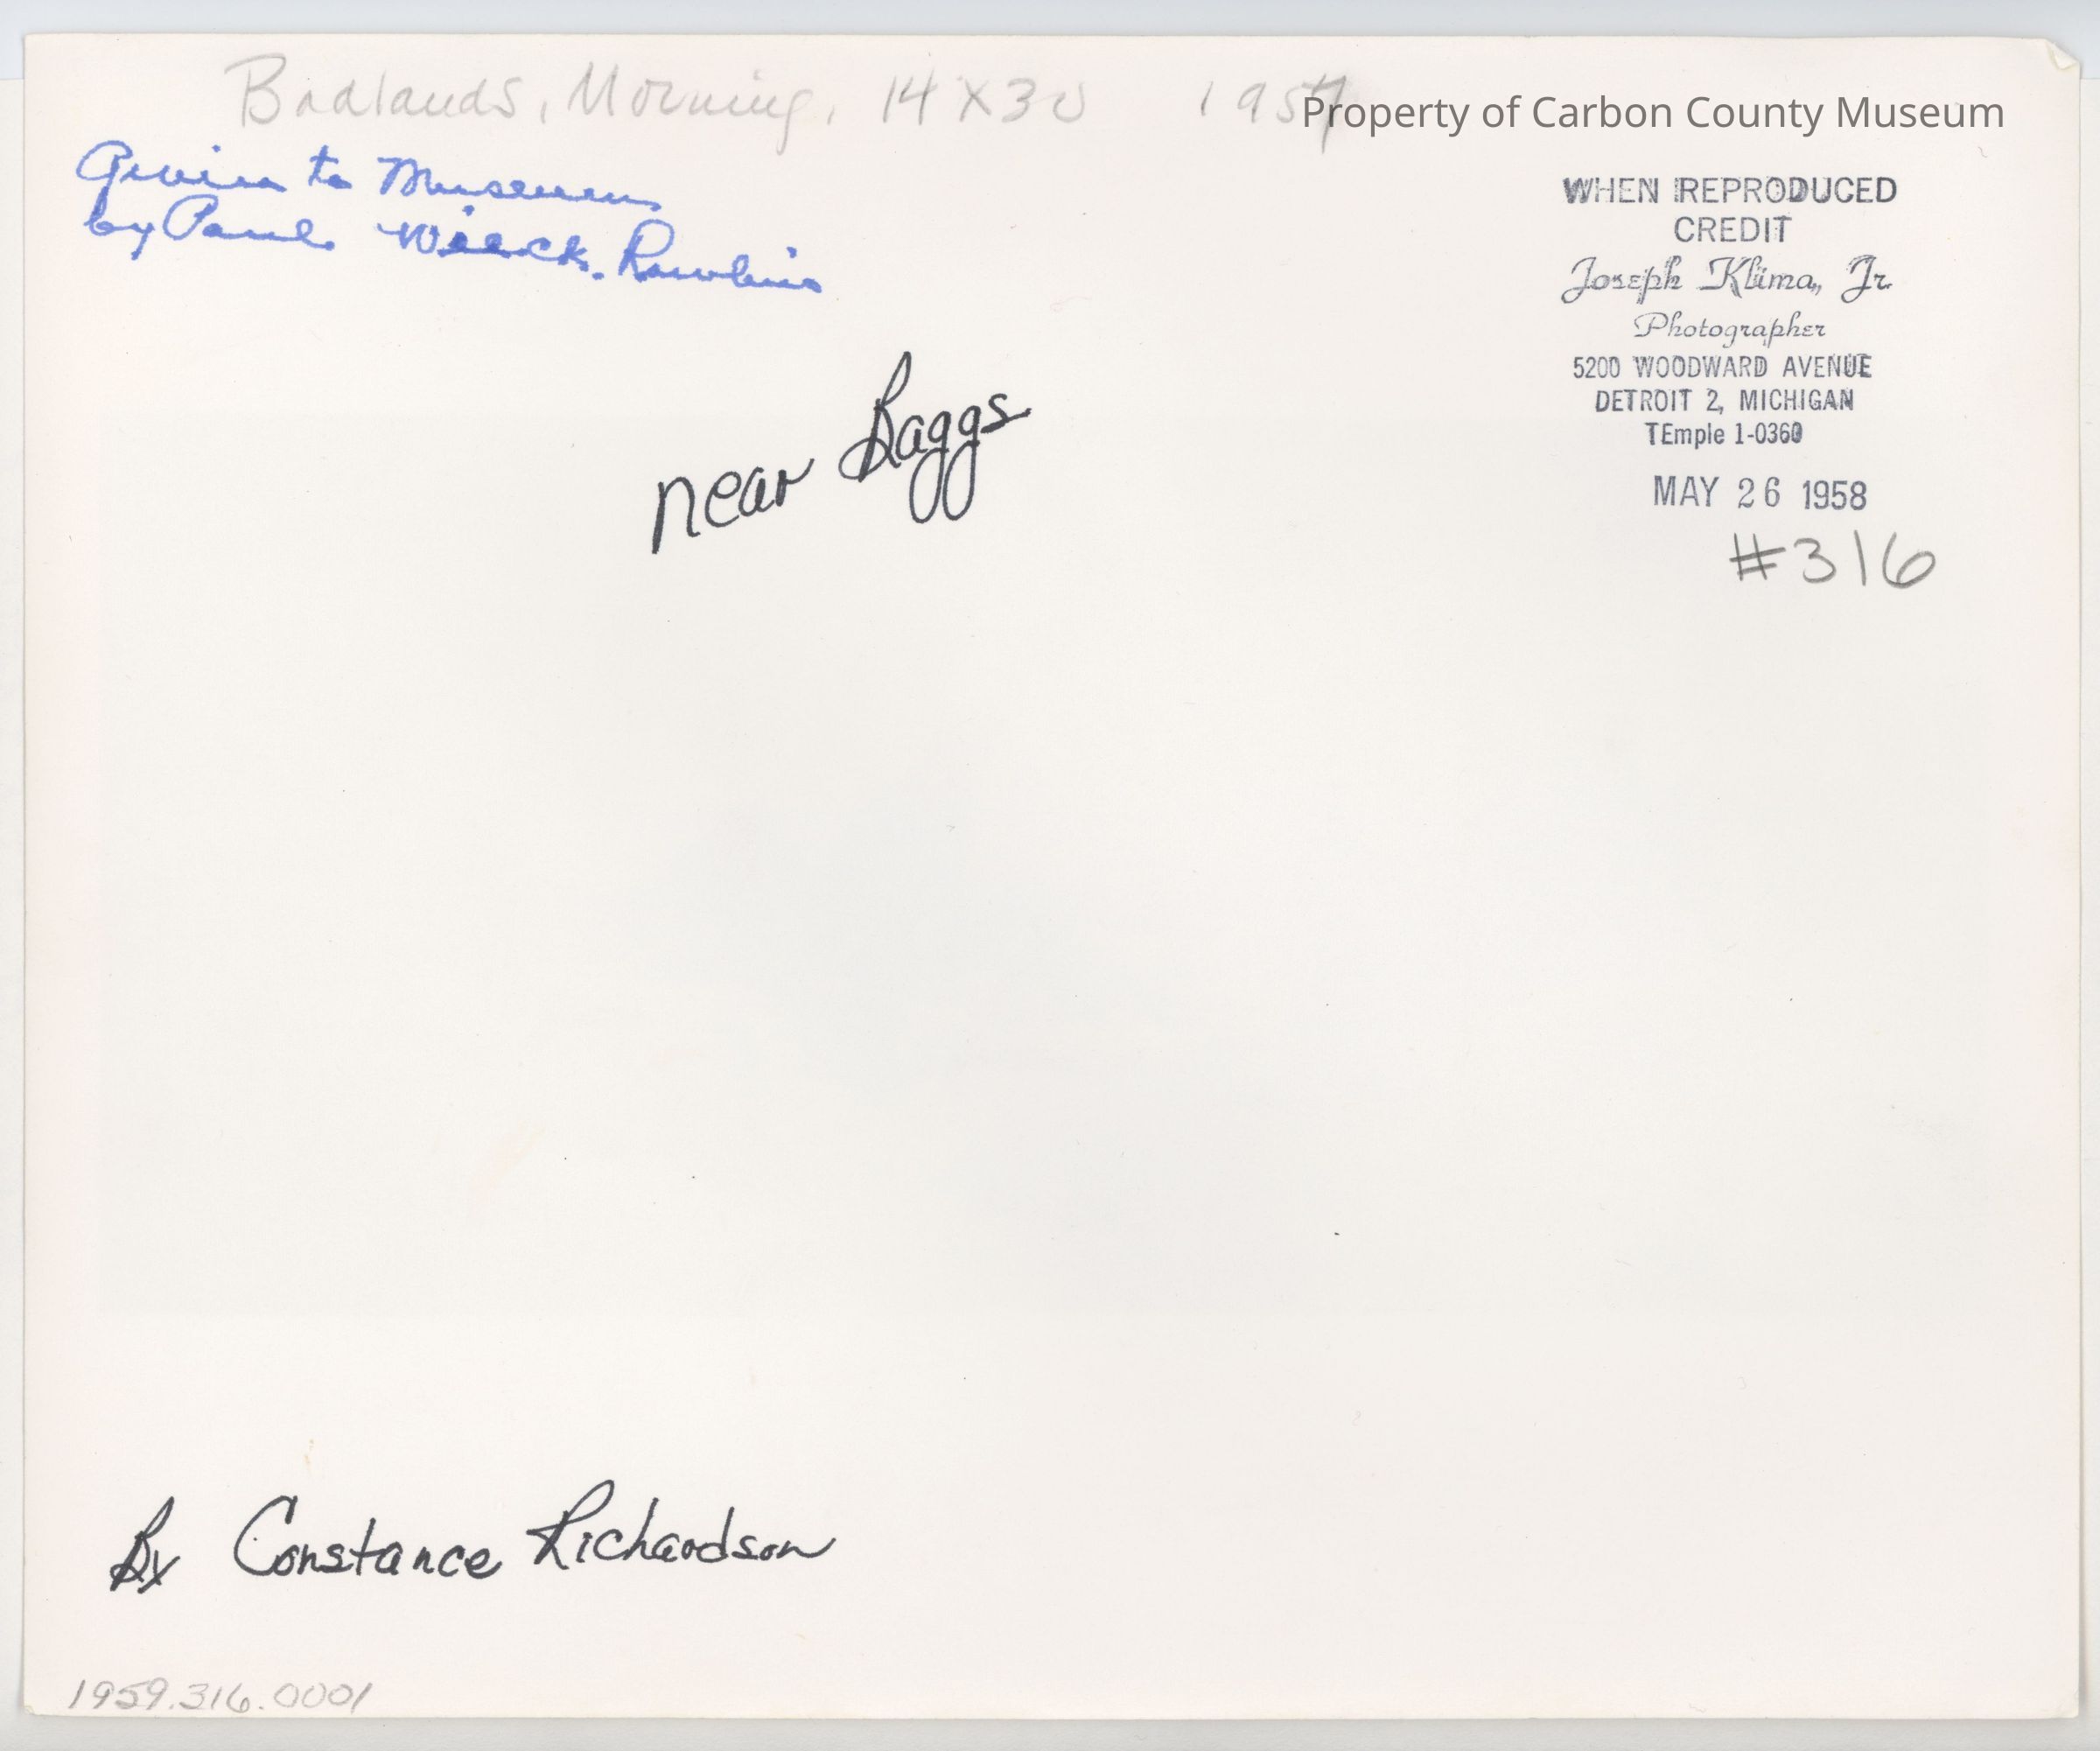 Badlands, Morning, 14 X 30 1957
Property of Carbon County Museum
Given to Museum
by Paul Rawlins
WHEN REPRODUCED
CREDIT
Joseph Klima, Jr.
Photographer
5200 WOODWARD AVENUE
DETROIT 2, MICHIGAN
TEmple 1-0360
MAY 26 1958
#316
near Baggs
By Constance Richardson
1959.316.0001